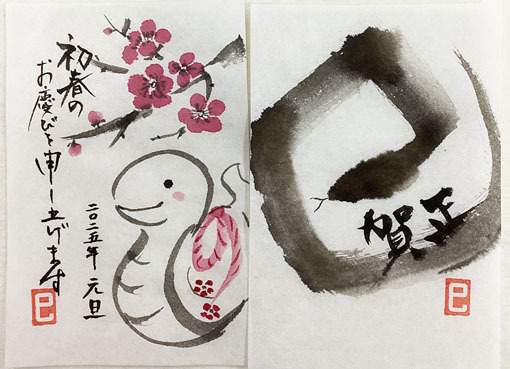 初春の
お慶びを申し上げます
二〇二五年 元旦
巳
賀正
巳